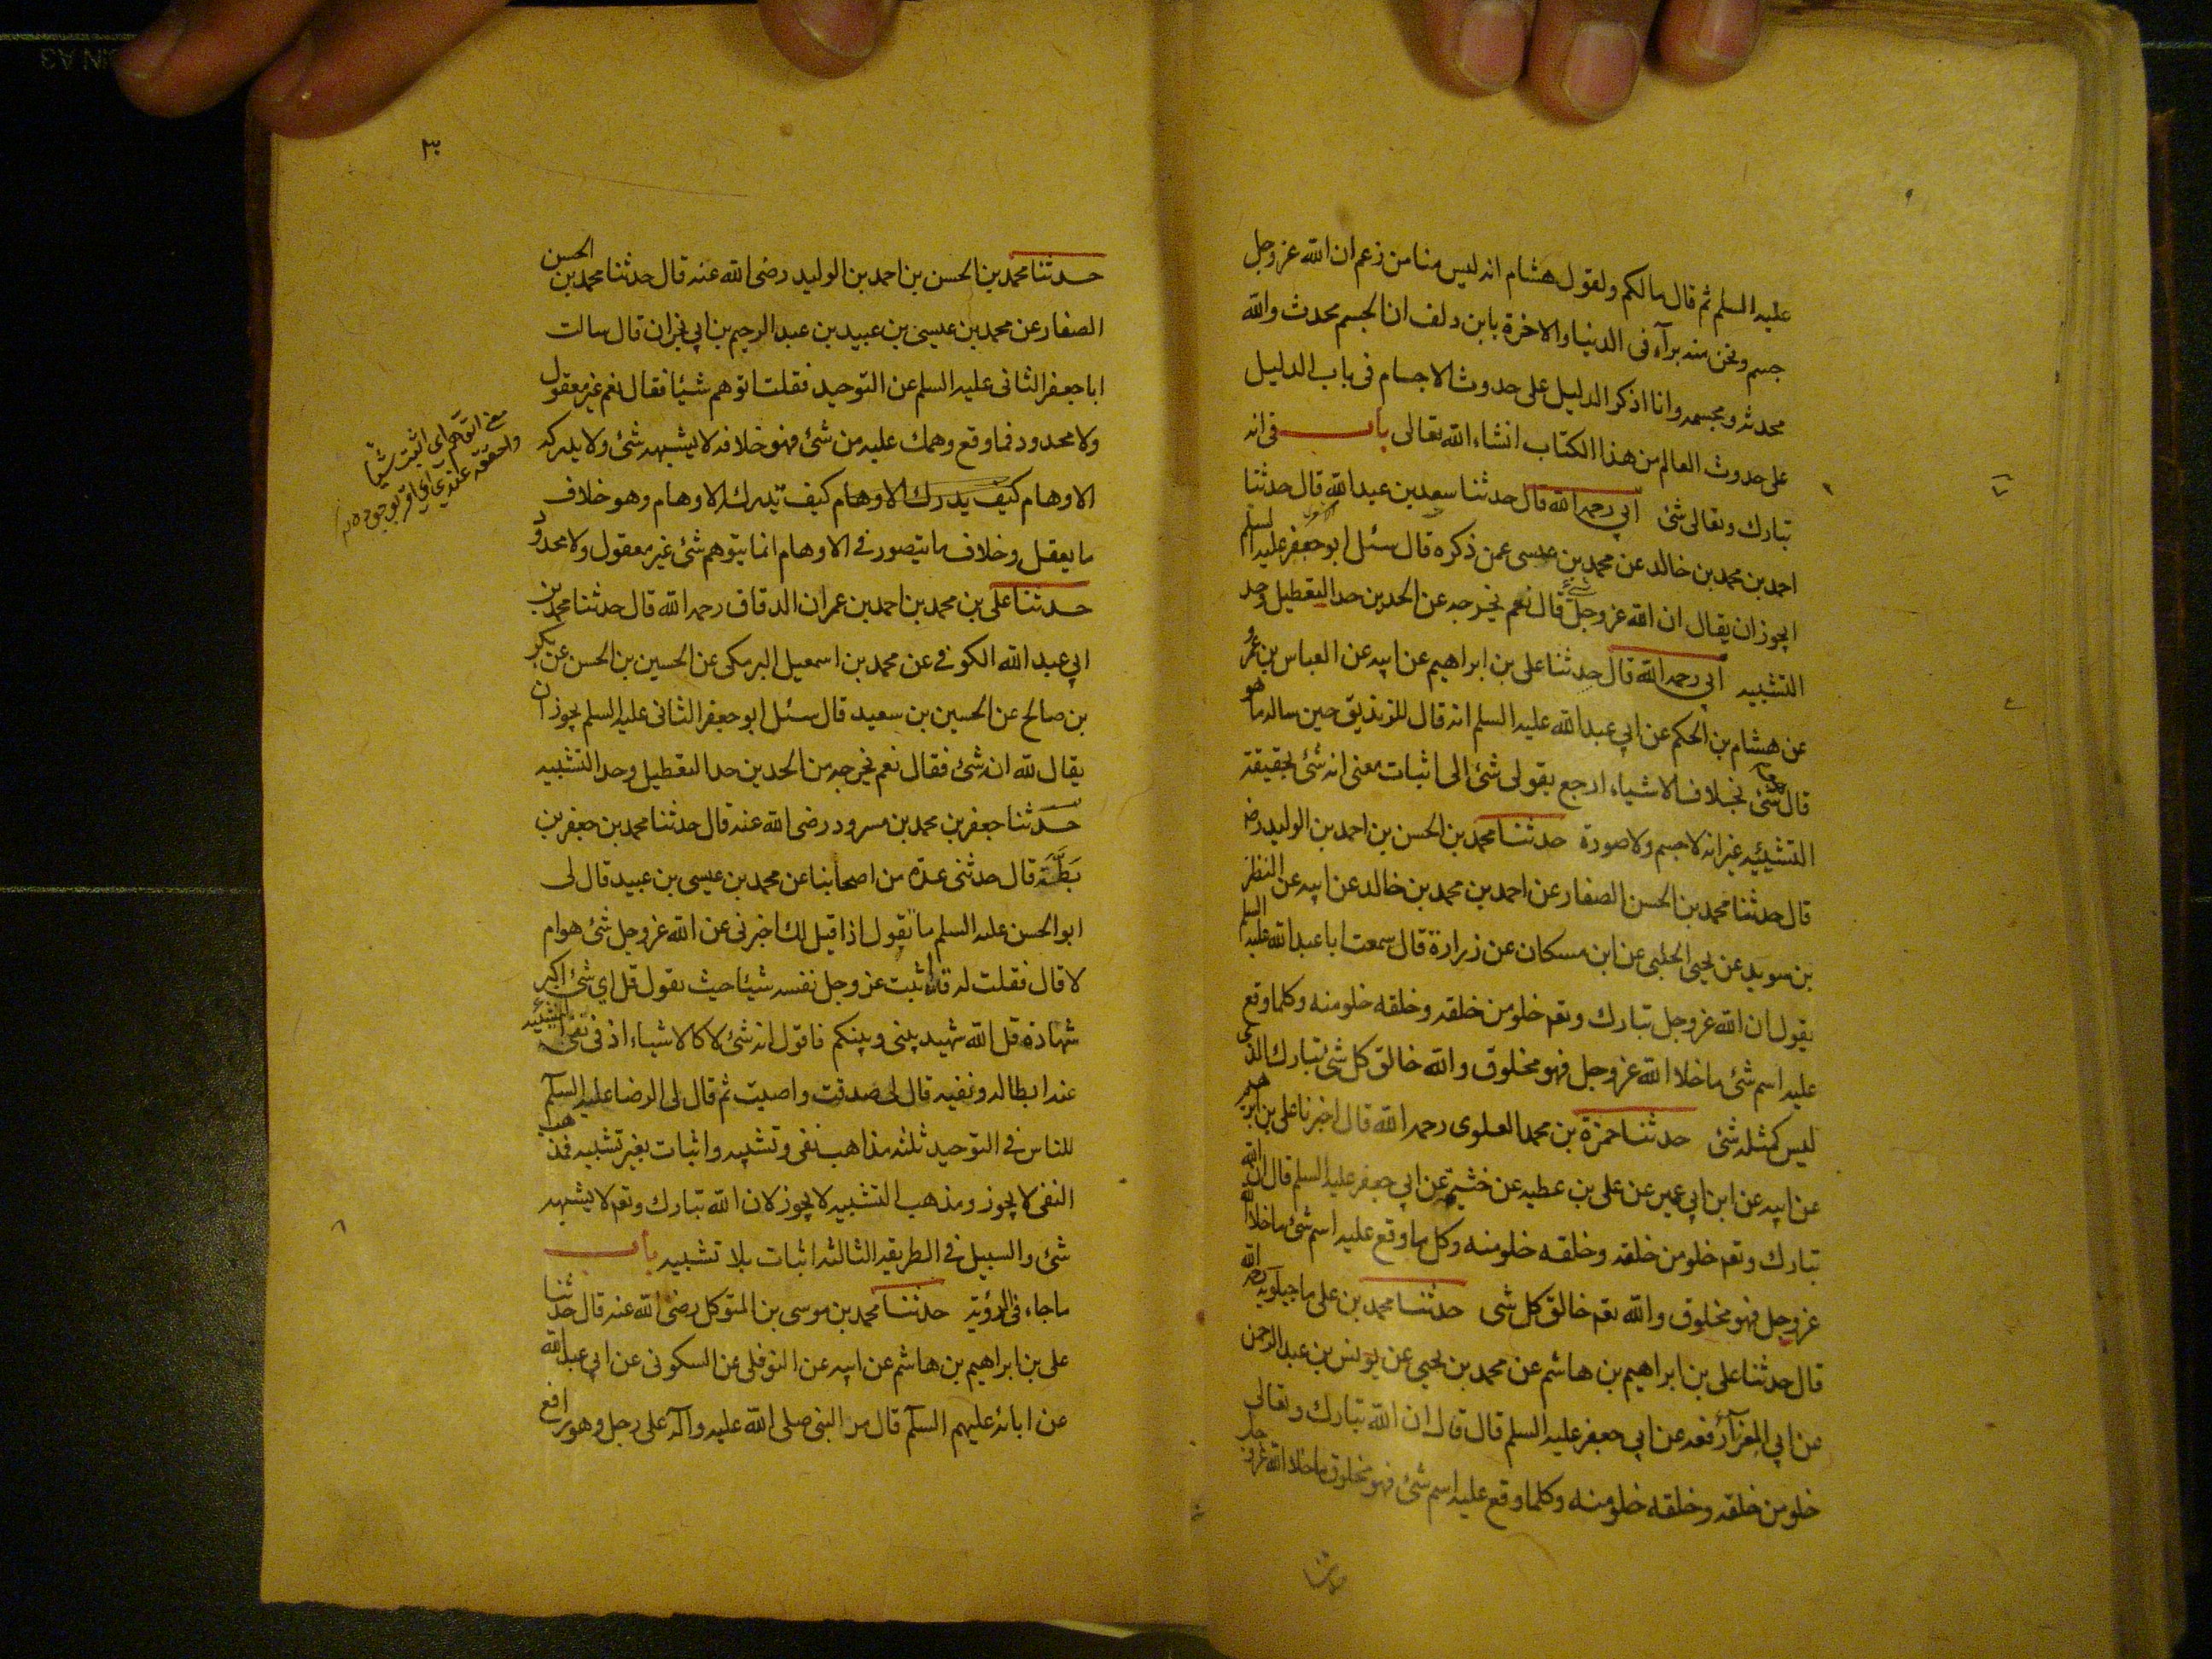 عليه السلم ثم قال مالكم ولقول هشام انه ليس منا من زعم ان الله عز وجل
جسم ونحن منه برآء في الدنيا والاخرة يا بن دلف ان الجسم محدث والله
محدثه ومجسمه وانا اذكر الدليل على حدوث الاجسام في باب الدليل
على حدوث العالم من هذا الكتاب انشاء الله تعالى باب في انه
تبارك وتعالى شئ ابي رحمه الله قال حدثنا سعد بن عبد الله قال حدثنا
احمد بن محمد بن خالد عن محمد بن عيسى عمن ذكره قال سئل ابو جعفر عليه السلم
ايجوز ان يقال ان الله عز وجل شئ قال نعم تخرجه عن الحدين حد التعطيل وحد
التشبيه ابي رحمه الله قال حدثنا علي بن ابراهيم عن ابيه عن العباس بن عمرو
عن هشام بن الحكم عن ابي عبد الله عليه السلم انه قال للزنديق حين ساله ما هو
قال هو شئ بخلاف الاشياء ارجع بقولي شئ الى اثبات معنى انه شئ بحقيقة
التشيئيه غير انه لا جسم ولا صورة حدثنا محمد بن الحسن بن احمد بن الوليد رض
قال حدثنا محمد بن الحسن الصفار عن احمد بن محمد بن خالد عن ابيه عن النظر
بن سويد عن يحيى الحلبي عن ابن مسكان عن زرارة قال سمعت ابا عبد الله عليه السلم
يقول ان الله عز وجل تبارك وتعم خلو من خلقه وخلقه خلو منه وكلما وقع
عليه اسم شئ ما خلا الله عز وجل فهو مخلوق والله خالق كل شئ تبارك الذي
ليس كمثله شئ حدثنا حمزة بن محمد العلوي رحمه الله قال اخبرنا علي بن ابرهيم
عن ابيه عن ابن ابي عمير عن علي بن عطيه عن خثيمه عن ابي جعفر عليه السلم قال ان الله
تبارك وتعم خلو من خلقه وخلقه خلو منه وكل ما وقع عليه اسم شئ ما خلا الله
عز وجل فهو مخلوق والله تعم خالق كل شى حدثنا محمد بن علي ماجيلويه رحمه الله
قال حدثنا علي بن ابراهيم بن هاشم عن محمد بن يحيى عن يونس بن عبد الرحمن
عن ابي المغرآ رفعه عن ابي جعفر عليه السلم قال قال ان الله تبارك وتعالى
خلو من خلقه وخلقه خلو منه وكلما وقع عليه اسم شئ فهو مخلوق ما خلا الله عز وجل
حدثنا
٣
حدثنا محمد بن الحسن بن احمد بن الوليد رضي الله عنه قال حدثنا محمد بن الحسن
الصفار عن محمد بن عيسى بن عبيد بن عبد الرحيم بن ابي نجران قال سالت
ابا جعفر الثاني عليه السلم عن التوحيد فقلت اتوهم شيئا فقال نعم غير معقول
ولا محدود فما وقع وهمك عليه من شئ فهو خلافه لا يشبهه شئ ولا يدركه
الاوهام كيف يدرك الاوهام كيف تدرك الاوهام وهو خلاف
ما يعقل وخلاف ما يتصور في الاوهام انما يتوهم شئ غير معقول ولا محدود
حدثنا علي بن محمد بن احمد بن عمران الدقاق رحمه الله قال حدثنا محمد بن
ابي عبد الله الكوفي عن محمد بن اسمعيل البرمكي عن الحسين بن الحسن عن بكر
بن صالح عن الحسين بن سعيد قال سئل ابو جعفر الثاني عليه السلم يجوز ان
يقال لله انه شئ فقال نعم تخرجه من الحدين حد التعطيل وحد التشبيه
حدثنا جعفر بن محمد بن مسرور رضي الله عنه قال حدثنا محمد بن جعفر بن
بطة قال حدثني عدة من اصحابنا عن محمد بن عيسى بن عبيد قال لي
ابو الحسن عليه السلم ما تقول اذا قيل لك اخبرني عن الله عز وجل شئ هو ام
لا قال فقلت له قد اثبت عز وجل نفسه شيئا حيث يقول قل اي شئ اكبر
شهادة قل الله شهيد بيني وبينكم فاقول انه شئ لا كالاشياء اذ في نفي الشيئيه
عنه ابطاله ونفيه قال لي صدقت واصبت ثم قال لي الرضا عليه السلم
للناس في التوحيد ثلثه مذاهب نفي وتشبيه واثبات بغير تشبيه فمذهب
النفي لا يجوز ومذهب التشبيه لا يجوز لان الله تبارك وتعم لا يشبهه
شئ والسبيل في الطريقه الثالثه اثبات بلا تشبيه باب
ما جاء في الرؤية حدثنا محمد بن موسى بن المتوكل رضي الله عنه قال حدثنا
علي بن ابراهيم بن هاشم عن ابيه عن النوفلي عن السكوني عن ابي عبد الله
عن ابائه عليهم السلم قال مر النبي صلى الله عليه وآله على رجل وهو رافع
معنى اتوهم اي اثبت شيئا